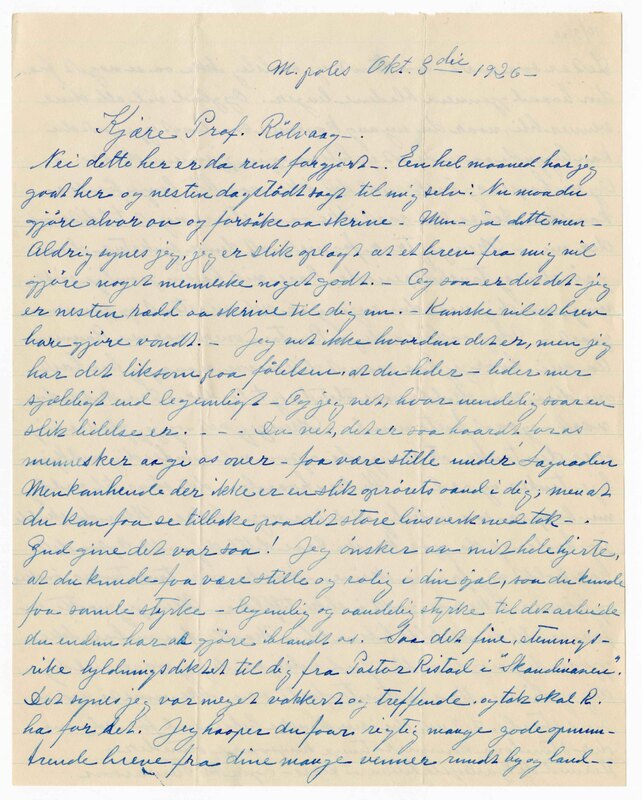 M.poles Okt. 3die 1926-
Kjære Prof. Rölvaag-.
Nei dette her er da rent forgjort-. En hel maaned har jeg
gaat her og nesten dagstödt sagt til mig selv: Nu maa du
gjöre alvor av og forsöke aa skrive - Men- ja dette men-
Aldrig synes jeg, jeg er slik oplagt at et brev fra mig vil
gjöre noget menneske noget godt. - Og saa er det det - jeg
er nesten rædd aa skrive til dig nu. - Kanske vil et brev
bare gjöre vondt. - Jeg vet ikke hvordan det er, men jeg
har det liksom paa fölelsen, at du lider - lider mer
sjæleligt end legemligt - Og jeg vet, hvor uendelig saar en
slik lidelse er. - - - - Du vet, det er saa haardt for os
mennesker aa gi os over - faa være stille under
Men kanhende der ikke er en slik oprörets aand i dig, men at
du kan faa se tilbake paa dit store livsverk med tak -.
Gud give det var saa! Jeg önsker av mit hele hjerte,
at du kunde faa være stille og rolig i din sjæl, saa du kunde
faa samle styrke - legemlig og aandelig styrke til det arbeide
du endnu har at gjöre iblandt os. Saa det fine, stemnings-
rike hyldningsdiktet til dig fra Pastor Ristad i "Skandinaven".
Det synes jeg var meget vakkert og treffende. og tak skal R.
ha for det. Jeg haaper du faar rigtig mange gode opmun-
trende breve fra dine mange venner rundt by og land--